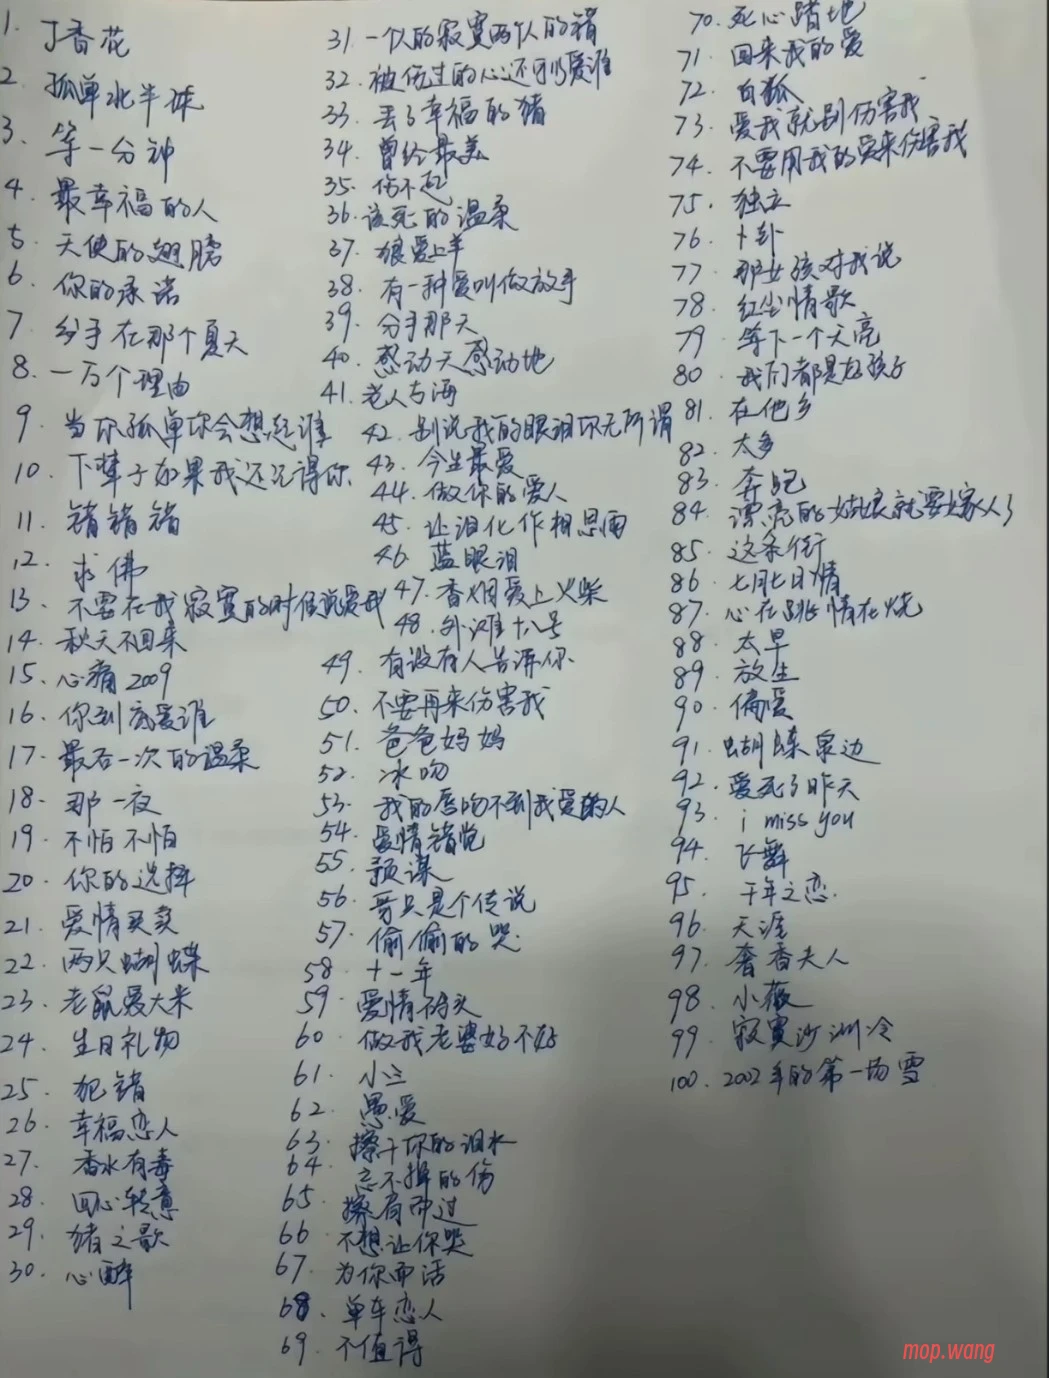 1. 丁香花
2. 孤单北半球
3. 等一分钟
4. 最幸福的人
5. 天使的翅膀
6. 你的承诺
7. 分手在那个夏天
8. 一万个理由
9. 当你孤单你会想起谁
10. 下辈子如果我还记得你
11. 错错错
12. 求佛
13. 不要在我寂寞的时候说爱我
14. 秋天不回来
15. 心痛2009
16. 你到底爱谁
17. 最后一次的温柔
18. 那一夜
19. 不怕不怕
20. 你的选择
21. 爱情买卖
22. 两只蝴蝶
23. 老鼠爱大米
24. 生日礼物
25. 犯错
26. 幸福恋人
27. 香水有毒
28. 回心转意
29. 猪之歌
30. 心醉
31. 一个人的寂寞两个人的错
32. 被伤过的心还可以爱谁
33. 丢了幸福的猪
34. 曾经最美
35. 伤不起
36. 该死的温柔
37. 狼爱上羊
38. 有一种爱叫做放手
39. 分手那天
40. 感动天感动地
41. 老人与海
42. 别说我的眼泪你无所谓
43. 今生最爱
44. 做你的爱人
45. 让泪化作相思雨
46. 蓝眼泪
47. 香烟爱上火柴
48. 外滩十八号
49. 有没有人告诉你
50. 不要再来伤害我
51. 爸爸妈妈
52. 冰吻
53. 我的唇吻不到我爱的人
54. 爱情错觉
55. 预谋
56. 哥只是个传说
57. 偷偷的哭
58. 十一年
59. 爱情码头
60. 做我老婆好不好
61. 小三
62. 愚爱
63. 擦干你的泪水
64. 忘不掉的伤
65. 擦肩而过
66. 不想让你哭
67. 为你而活
68. 单车恋人
69. 不值得
70. 死心踏地
71. 回来我的爱
72. 白狐
73. 爱我就别伤害我
74. 不要用我的爱来伤害我
75. 独立
76. 卜卦
77. 那女孩对我说
78. 红尘情歌
79. 等下一个天亮
80. 我们都是好孩子
81. 在他乡
82. 太多
83. 奔跑
84. 漂亮的姑娘就要嫁人了
85. 这条街
86. 七月七日情
87. 心在跳情在烧
88. 太早
89. 放生
90. 偏爱
91. 蝴蝶泉边
92. 爱死了昨天
93. i miss you
94. 飞舞
95. 千年之恋
96. 天涯
97. 奢香夫人
98. 小薇
99. 寂寞沙洲冷
100. 2002年的第一场雪
mop.wang